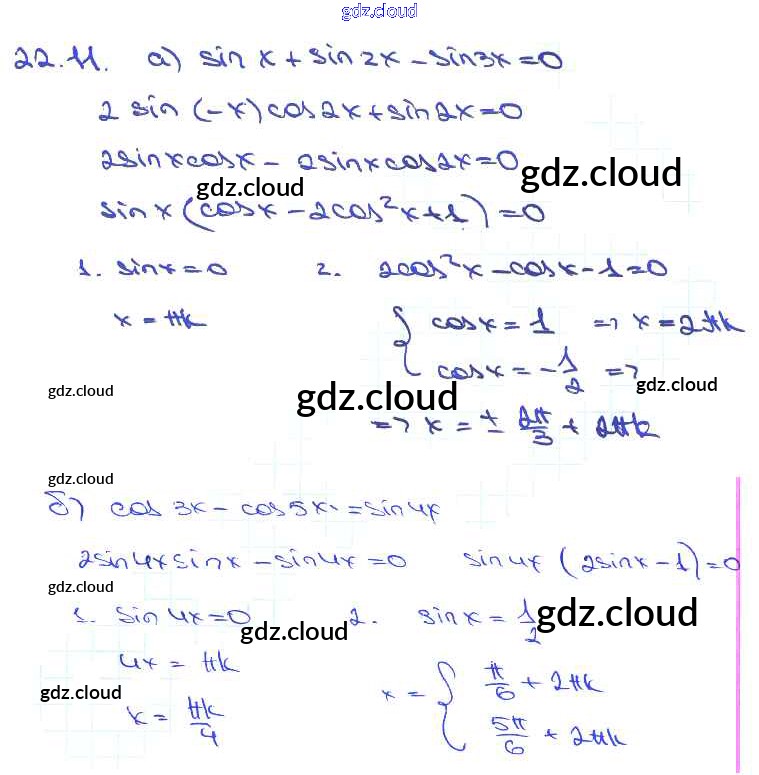 gdz.cloud
22.11. а) sin x + sin 2x - sin 3x = 0
2 sin (-x) cos 2x + sin 2x = 0
2 sin x cos x - 2 sin x cos 2x = 0
gdz.cloud gdz.cloud
sin x (cos x - 2cos² x + 1) = 0
1. sin x = 0 2. 2cos² x - cos x - 1 = 0
x = πk { cos x = 1 => x = 2πk
cos x = - 1/2 =>
gdz.cloud gdz.cloud gdz.cloud
=> x = ± 2π/3 + 2πk
gdz.cloud
б) cos 3x - cos 5x = sin 4x
2 sin 4x sin x - sin 4x = 0 sin 4x (2 sin x - 1) = 0
gdz.cloud
1. sin 4x = 0 2. sin x = 1/2
gdz.cloud gdz.cloud
4x = πk x = { π/6 + 2πk
gdz.cloud
x = πk/4 5π/6 + 2πk